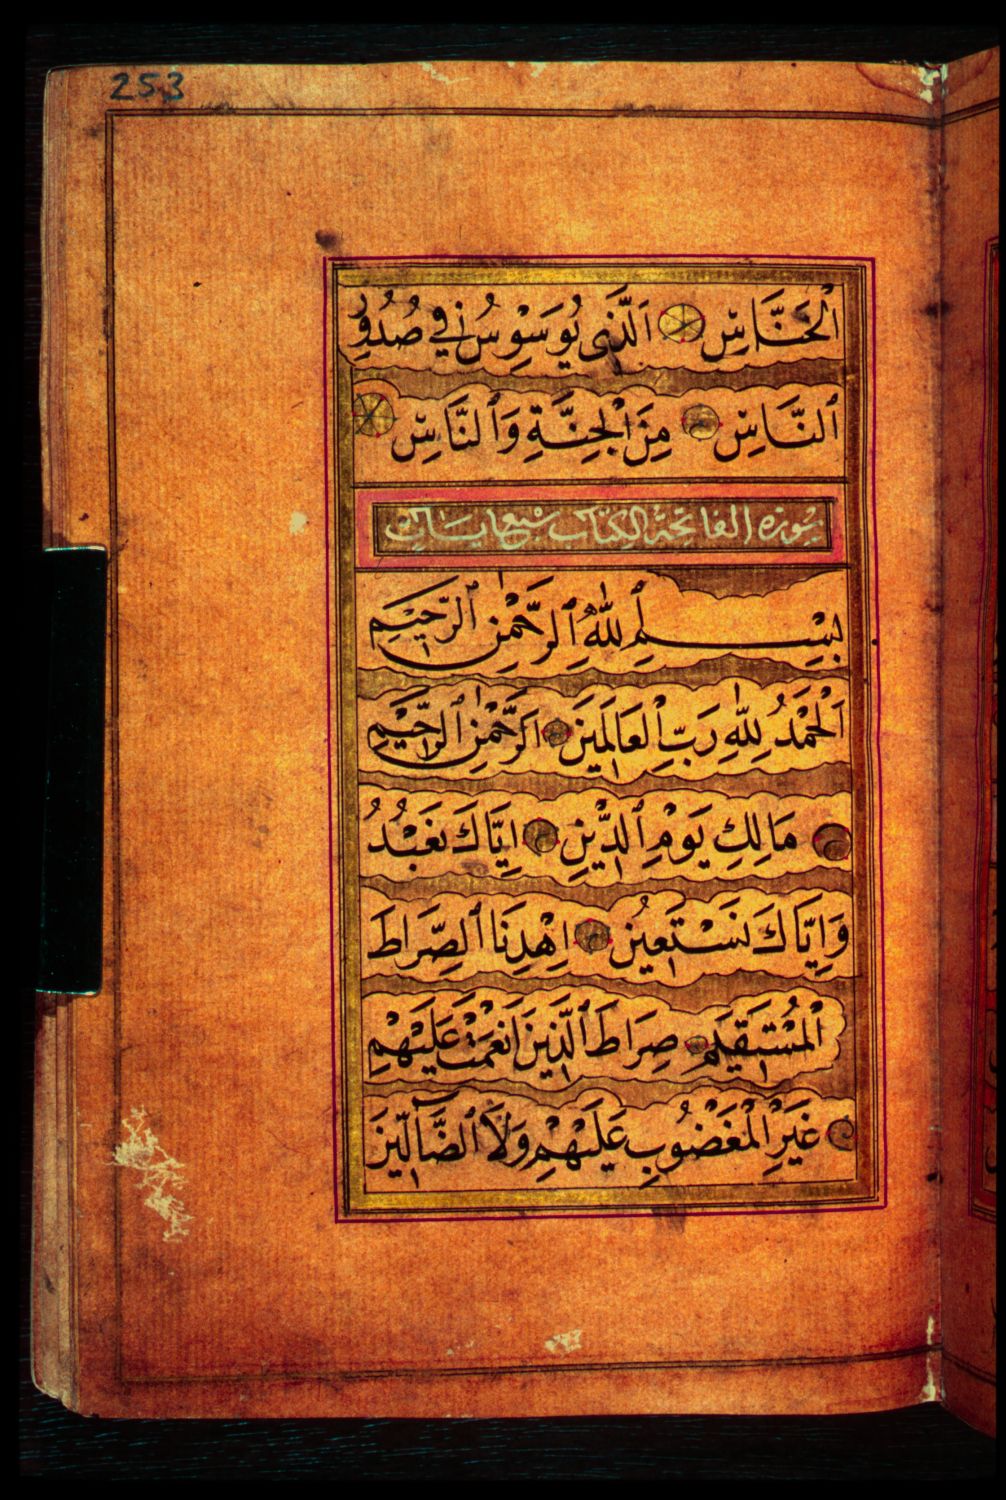 253
الْخَنَّاسِ الَّذِي يُوَسْوِسُ فِي صُدُورِ
النَّاسِ مِنَ الْجِنَّةِ وَالنَّاسِ
سورة الفاتحة الكتاب سبع ايات
بِسْمِ اللّٰهِ الرَّحْمٰنِ الرَّحِيمِ
اَلْحَمْدُ لِلّٰهِ رَبِّ الْعَالَمِينَ اَلرَّحْمٰنِ الرَّحِيمِ
مَالِكِ يَوْمِ الدِّينِ اِيَّاكَ نَعْبُدُ
وَاِيَّاكَ نَسْتَعِينُ اِهْدِنَا الصِّرَاطَ
الْمُسْتَقِيمَ صِرَاطَ الَّذِينَ اَنْعَمْتَ عَلَيْهِمْ
غَيْرِ الْمَغْضُوبِ عَلَيْهِمْ وَلَا الضَّآلِّينَ